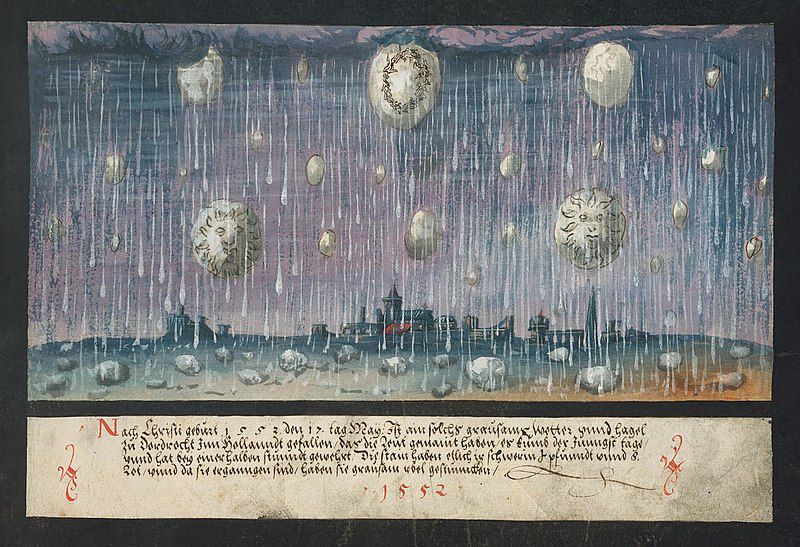 Nach Christi geburt 1 5 5 2 den 17 tag May, Ist ain solchs grausam wetter vnnd hagel
zu Dordrocht Inn Hollanndt gefallen, das die Leut gemaint haben, es kumb der Jüngst tage,
vnnd hat beÿ einer halben stunndt gewehrt. Die stain haben etlich ir schwerin 4 pfunndt vnnd 8.
Lot, vnnd da sie erganngen sind, haben sie grausam vbel gestunncken,
· 1 5 5 2 ·